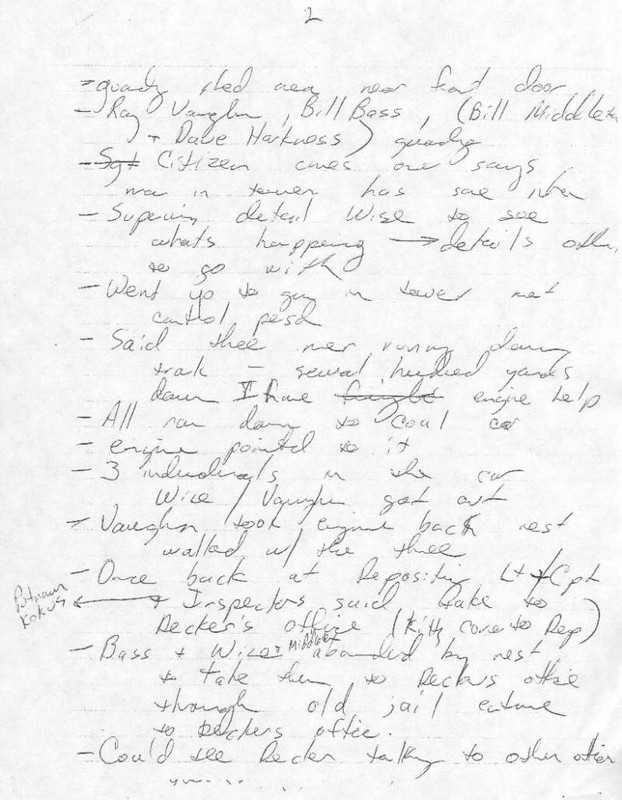 2
- guardy shed area near front door
- Ray Vaughn, Bill Bass, (Bill Middleton
+ Dave Harkness) guardy
- Sgt Citizen comes over says
man in tower has some
- detail Wise to see
whats happening → details
to go with
- Went up to guy in tower
control
- Said three men runny down
track - several hundred yards
down I have freight engine help
- All ran down to coal car
- engine pointd to it
- 3 individuals in the car
Wise / Vaughn got out
- Vaughn took engine back rest
walked w/ the three
- Once back at Depository Lt + Cpt
Putnam
Kokos
+ Inspectors said take to
Decker's office (Kitty come to Dep)
- Bass + Wise + Middleton by rest
to take them to Deckers office
through old jail
to Deckers office.
- Could see Decker talking to other